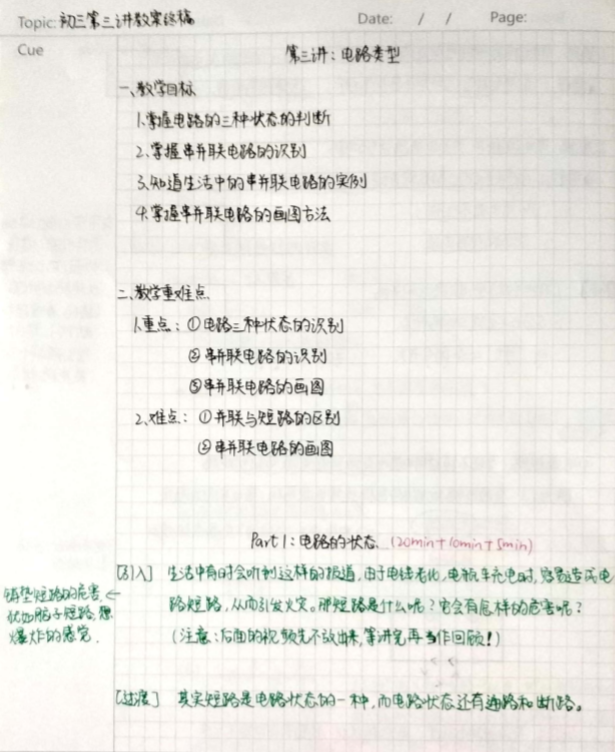 Topic: 初三第三讲教案终稿 Date: / / Page:
Cue
第三讲：电路类型
一、教学目标
1.掌握电路的三种状态的判断
2.掌握串并联电路的识别
3.知道生活中的串并联电路的实例
4.掌握串并联电路的画图方法
二、教学重难点
1.重点：①电路三种状态的识别
②串并联电路的识别
③串并联电路的画图
2.难点：①并联与短路的区别
②串并联电路的画图
Part 1：电路的状态 (20min+10min+5min)
[引入] 生活中有时会听到这样的报道，由于电线老化，电瓶车充电时，容易造成电
路短路，从而引发火灾。那短路是什么呢？它会有怎样的危害呢？
(注意：后面的视频先不放出来，等讲完再当作回顾！)
铺垫短路的危害←
犹如脑子短路，想
爆炸的感觉.
[过渡] 其实短路是电路状态的一种，而电路状态还有通路和断路。